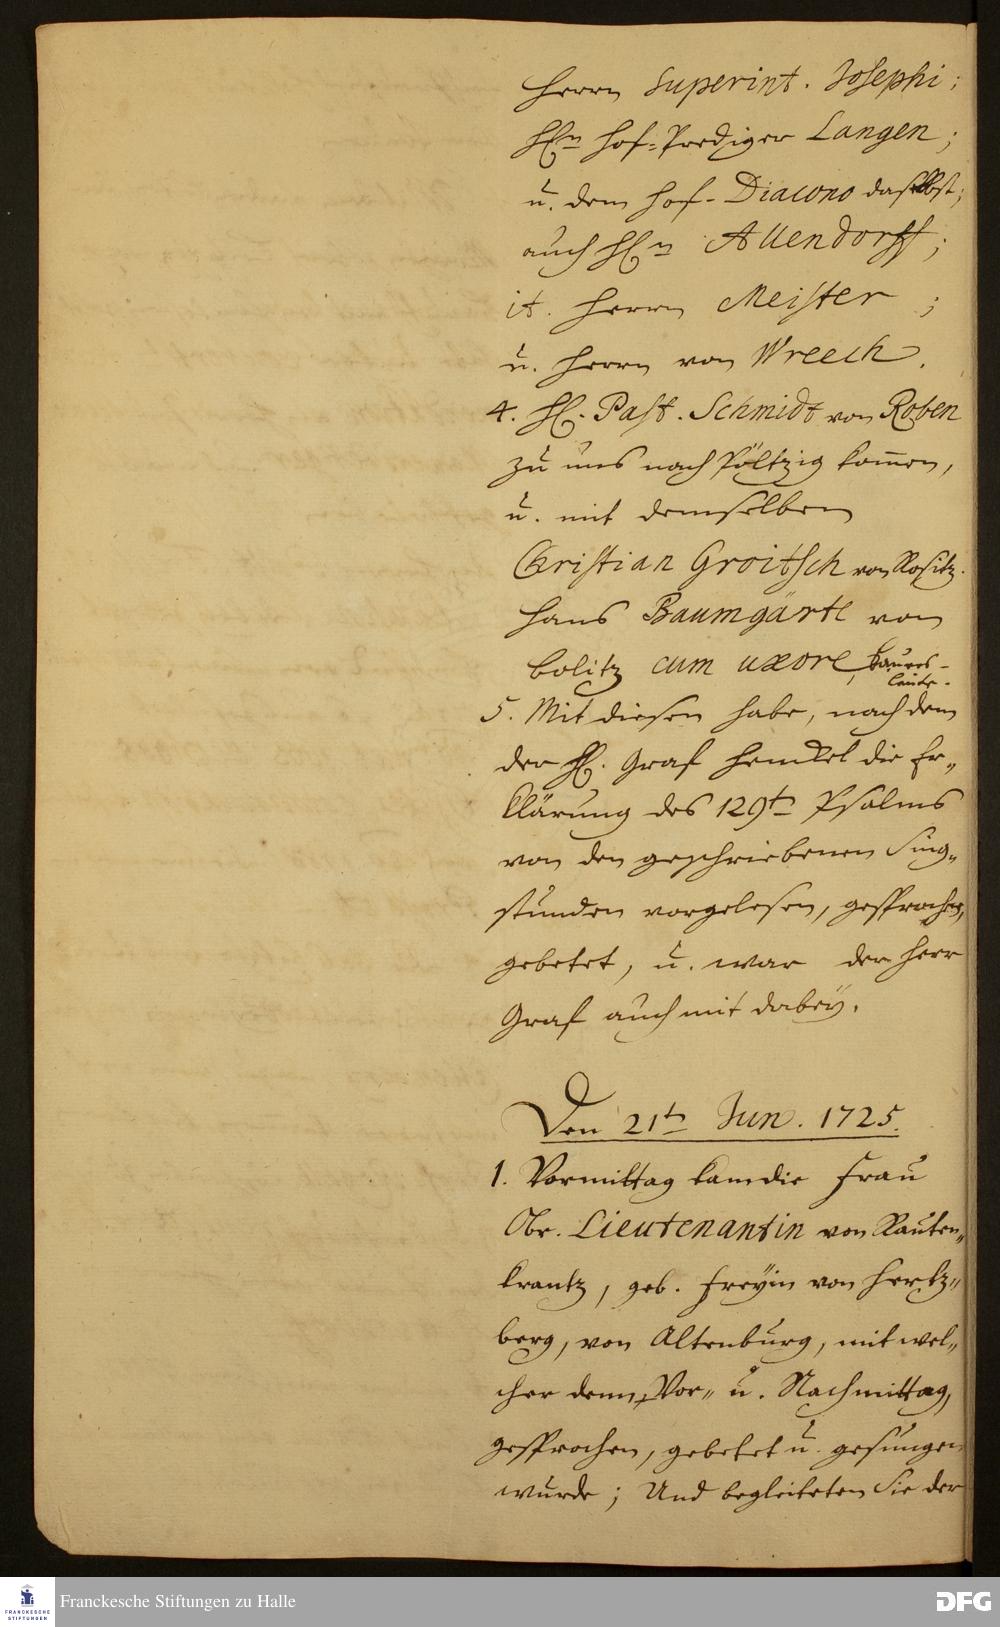 Herrn Superint. Josephi;
HEn Hof-Prediger Langen;
u. dem Hof-Diacono daselbst;
auch HEn Allendorff;
it. Herrn Meister;
u. Herrn von Wreech.
4. HE. Past. Schmidt von Roben
zu uns nach Pöltzig kom̄en,
u. mit demselben
Christian Groitsch von Rositz.
Hans Baumgärtl von
bolitz cum uxore, bauers-
leute.
5. Mit diesen habe, nachdem
der HE. Graf Henckel die Er„
klärung des 129tn Psalms
von den geschriebenen Sing„
stunden vorgelesen, gesprochen,
gebetet, u. war der Herr
Graf auch mit dabeÿ.
Den 21tn Jun. 1725.
1. Vormittag kam die Frau
Obr. Lieutenantin von Rauten„
krantz, geb. Freÿin von Hertz„
berg, von Altenburg, mit wel„
cher denn Vor„ u. Nachmittag,
gesprochen, gebetet u. gesungen
wurde; Und begleiteten Sie der
Franckesche Stiftungen zu Halle
FRANCKESCHE
STIFTUNGEN
DFG